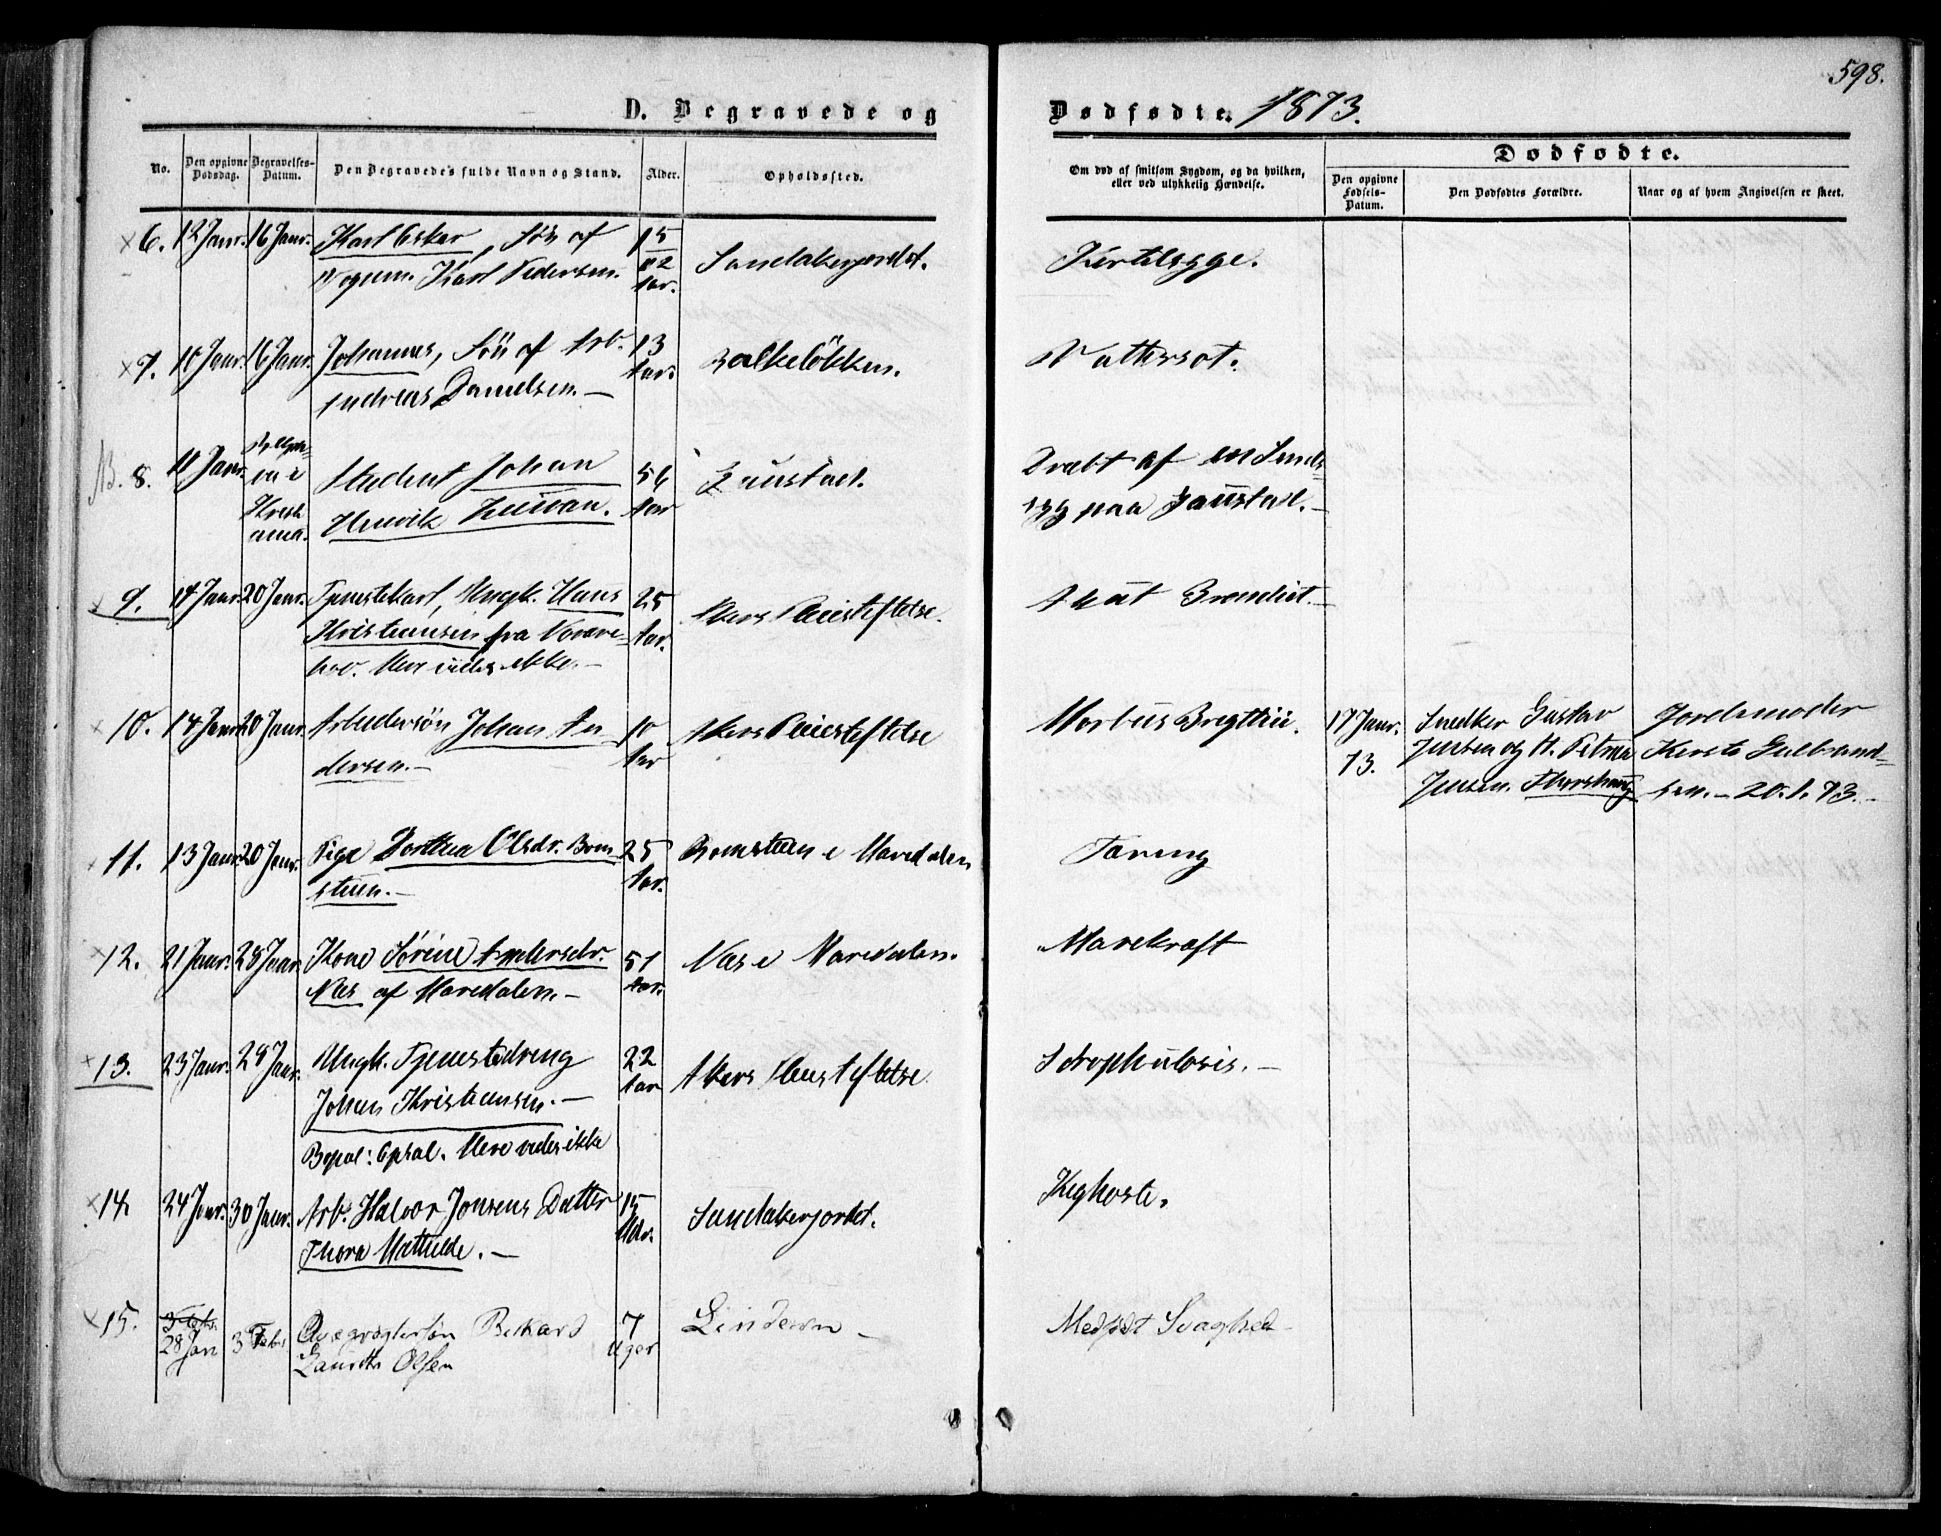 598.
D. Begravede og Dødfødte. 1873.
No. Den opgivne Dødsdag. Begravelses-Datum. Den Begravedes fulde Navn og Stand. Alder. Opholdssted. Om død af smitsom Sygdom, og da hvilken, eller ved ulykkelig Hændelse. Dødfødte.
Den opgivne Fødsels-Datum. Den Dødfødtes Forældre. Naar og af hvem Angivelsen er skeet.
6. 12 Janr. 16 Janr. Karl Oskar, Søn af 15 Sandakerjordet. Kertelsyge.
Vognm. Karl Pedersen. Aar.
7. 10 Janr. 16 Janr. Johannes, Søn af Arb. 13 Balkeløkken. Vattersot.
Andreas Danielsen. — Aar.
8. 11 Janr. Student Johan 56 Gaustad. Dræbt af en Sinds-
Henrik Aar syg paa Gaustad. —
9. 14 Janr. 20 Janr. Tjenestekarl, Ungk. Hans 25 Akers Pleiestiftelse. Akut
Kristiansen fra Aar.
Mere vides ikke. —
10. 14 Janr. 20 Janr. Johan An- 10 Akers Pleiestiftelse Morbus Brigthii. 17 Janr. Snedker Gustav Jordemoder
dersen. — Aar 73. Jensen og H. Petrea Kersti Gulbrand-
Jensen. Thorshaug sen. — 20.1.73. —
11. 13 Janr. 20 Janr. Pige Dorthea Olsdr. Brun- 25 Brunsteen i Maridalen Tæring
steen. — Aar.
12. 21 Janr. 28 Janr. Kone Sørine Andersdr. 51 Næs i Maridalen. Mavekræft
Næs af Maridalen. — Aar.
13. 23 Janr. 28 Janr. Ungk. Tjenestedreng 22 Akers Pleiestiftelse. Scrophulosis. —
Johan Kristiansen. — Aar
Bopæl: Opsal. Mere vides ikke
14. 24 Janr. 30 Janr. Arb. Halvor Jonsens Datter 15 Sandakerjordet. Kighoste.
Thora Mathilde. — Mdr.
15. 3 Febr. 28 Jan 3 Febr Rikard 7 Lindern — Medfødt Svaghed
Olsen Uger